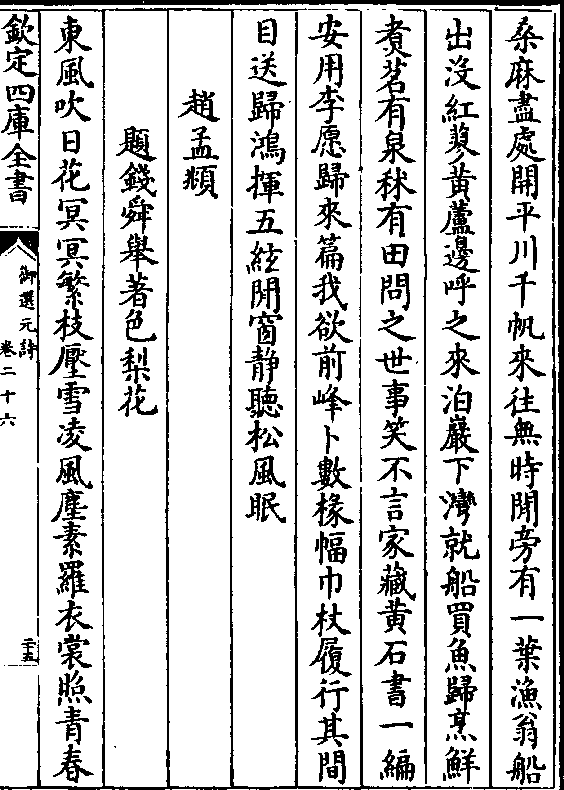 桑麻盡處開平川千帆來往無時閒旁有一葉漁翁船
出没紅蓼黄蘆邊呼之來泊巖下灣就船買魚歸烹鮮
煑茗有泉秫有田問之世事笑不言家藏黄石書一編
安用李愿歸來篇我欲前峰卜數椽幅巾杖履行其間
目送歸鴻揮五絃閒窗静聽松風眠
趙孟頫
題錢舜舉著色梨花
東風吹日花冥冥繁枝壓雪凌風塵素羅衣裳照青春
欽定四庫全書
御選元詩
卷二十六
二十五